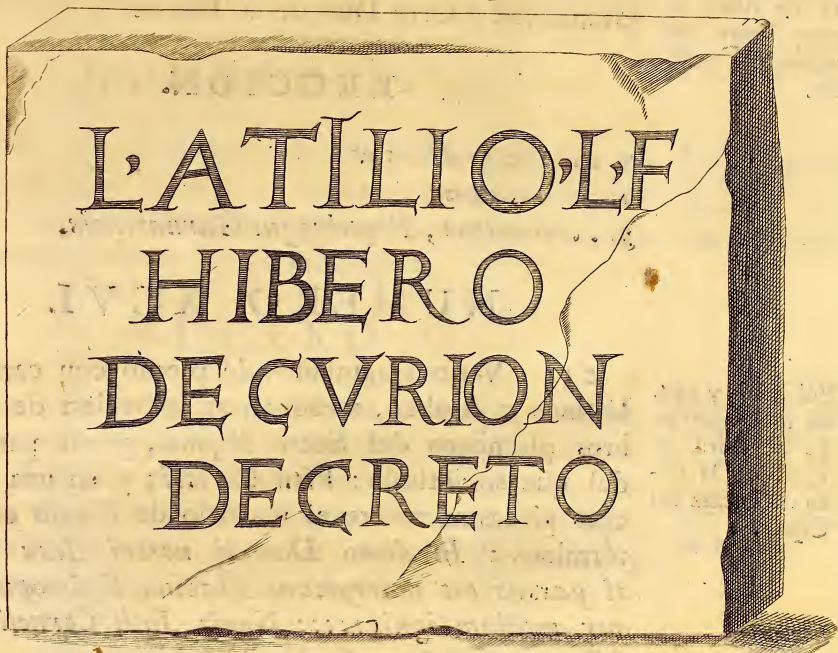 L,ATILIO,L,F
HIBERO
DECVRION
DECRETO